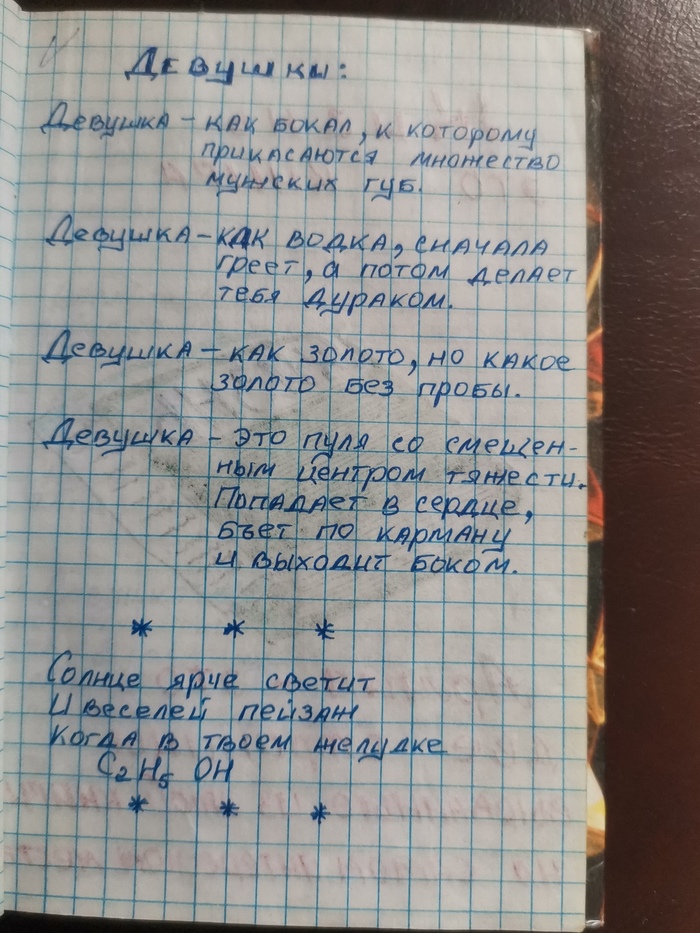 Девушки:
Девушка – как бокал, к которому
прикасаются множество
мужских губ.
Девушка – как водка, сначала
греет, а потом делает
тебя дураком.
Девушка – как золото, но какое
золото без пробы.
Девушка – это пуля со смещен-
ным центром тяжести.
Попадает в сердце,
бъет по карману
и выходит боком.
* * *
Солнце ярче светит
И веселей пейзаж
Когда в твоем желудке
C₂H₅ OH
* * *